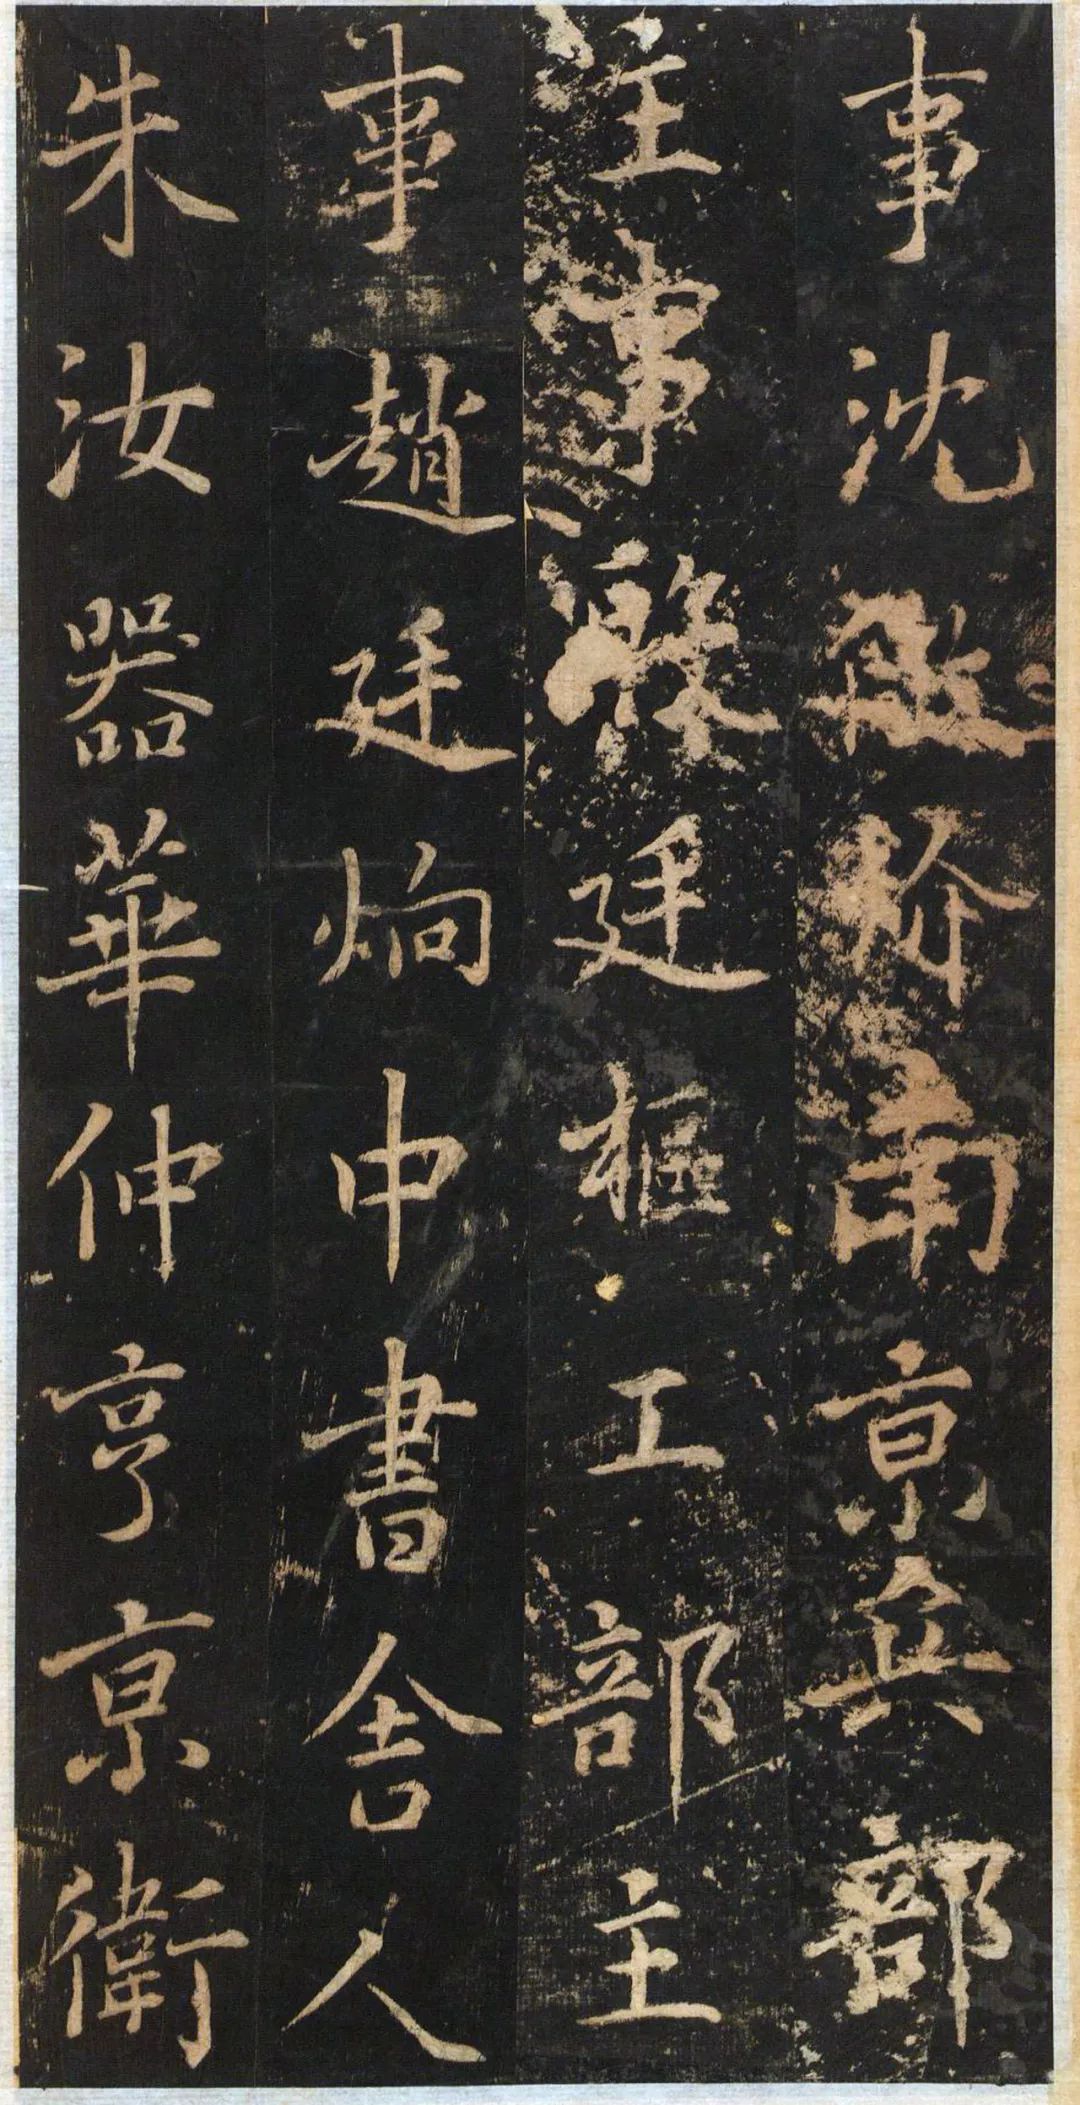 事沈敬炌南京兵部
主事殷廷樞工部主
事趙廷炯中書舍人
朱汝器華仲亨京衛